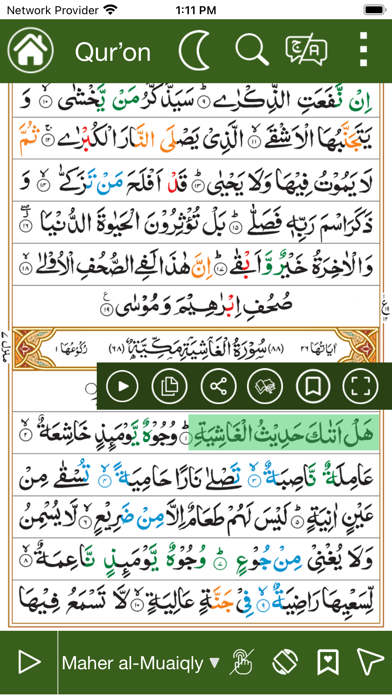 Network Provider 1:11 PM
Qur’on
اِنْ نَّفَعَتِ الذِّكْرٰىؕ ۹ سَيَذَّكَّرُ مَنْ يَّخْشٰىۙ ۱۰ وَ
يَتَجَنَّبُهَا الْاَشْقَىۙ ۱۱ الَّذِيْ يَصْلَى النَّارَ الْكُبْرٰىۚ ۱۲ ثُمَّ
لَا يَمُوْتُ فِيْهَا وَلَا يَحْيٰىؕ ۱۳ قَدْ اَفْلَحَ مَنْ تَزَكّٰىۙ ۱۴ وَ
ذَكَرَ اسْمَ رَبِّهٖ فَصَلّٰىؕ ۱۵ بَلْ تُؤْثِرُوْنَ الْحَيٰوةَ الدُّنْيَا ۱۶
وَالْاٰخِرَةُ خَيْرٌ وَّاَبْقٰىؕ ۱۷ اِنَّ هٰذَا لَفِي الصُّحُفِ الْاُوْلٰىۙ ۱۸
صُحُفِ اِبْرٰهِيْمَ وَمُوْسٰى ۱۹
اٰيَاتُهَا ۲۶ (۸۸) سُوْرَةُ الْغَاشِيَةِ مَكِّيَّةٌ (۶۸) رُكُوْعُهَا ۱
هَلْ اَتٰىكَ حَدِيْثُ الْغَاشِيَةِؕ ۱ وُجُوْهٌ يَّوْمَىِٕذٍ خَاشِعَةٌۙ ۲
عَامِلَةٌ نَّاصِبَةٌۙ ۳ تَصْلٰى نَارًا حَامِيَةًۙ ۴ تُسْقٰى مِنْ
عَيْنٍ اٰنِيَةٍؕ ۵ لَيْسَ لَهُمْ طَعَامٌ اِلَّا مِنْ ضَرِيْعٍۙ ۶ لَّا يُسْمِنُ
وَلَا يُغْنِيْ مِنْ جُوْعٍؕ ۷ وُجُوْهٌ يَّوْمَىِٕذٍ نَّاعِمَةٌۙ ۸
لِّسَعْيِهَا رَاضِيَةٌۙ ۹ فِيْ جَنَّةٍ عَالِيَةٍۙ ۱۰ لَّا تَسْمَعُ فِيْهَا
Maher al-Muaiqly